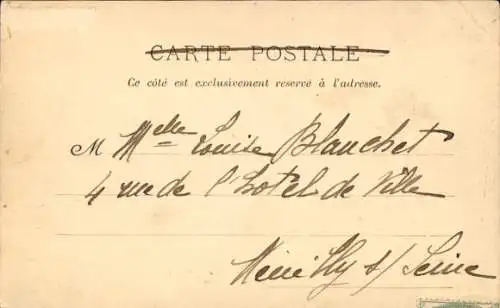 CARTE POSTALE
Ce côté est exclusivement reservé à l'adresse.
M Melle Louise Blanchet
4 rue de l'hotel de Ville
Neuilly s/ Seine